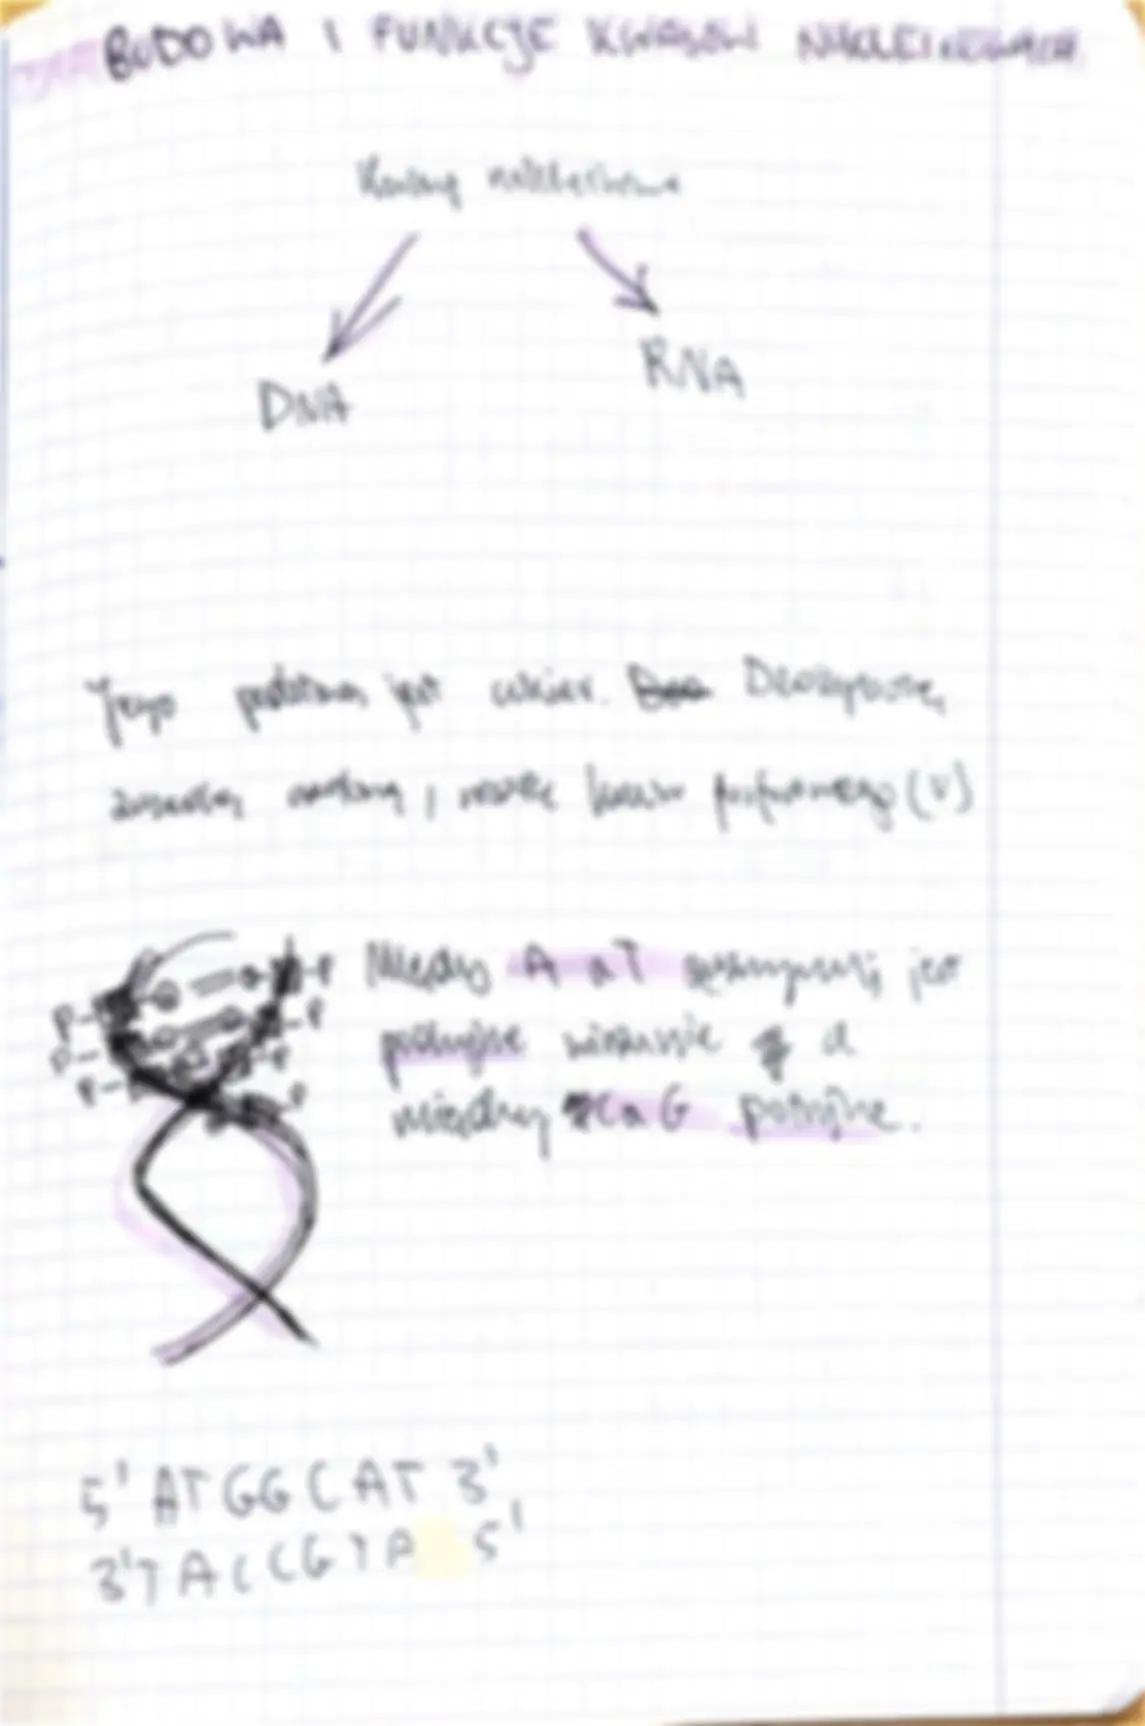 BUDOWA I FUNKCJE KWASÓW NUKLEINOWYCH
Kwasy nukleinowe
DNA
RNA
jest cukier. Deoksyryboza,
zasada, i reszta kwasu fosforowego (V)
P
P
P
P
P
P
P
Między A a T jest
podwójne wiązanie a
między C a G potrójne.
5' ATGGCAT 3'
3' TACCGTA 5'